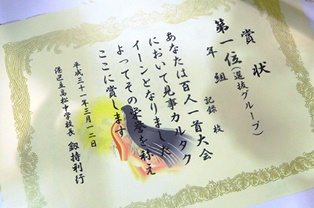 賞状
第一位(選抜グループ)
年 組
記録 枚
あなたは百人一首大会
において見事カルタク
イーンとなりました
よってその栄誉を称え
ここに賞します
平成三十一年三月一二日
港区立高松中学校長 釼持利行